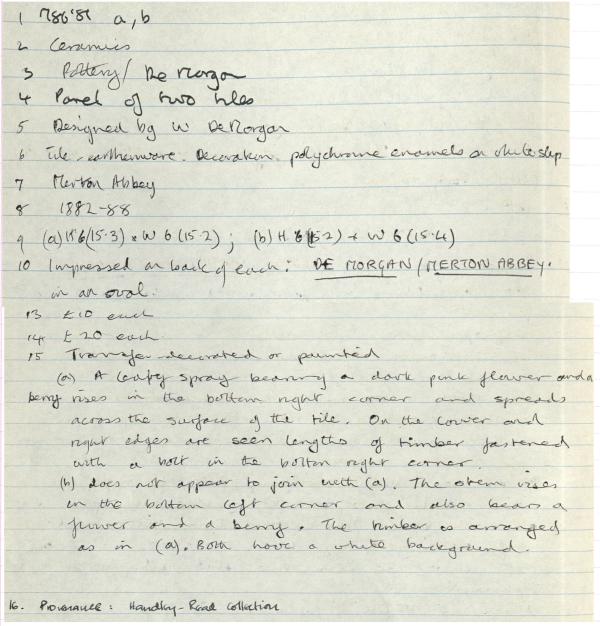 1 786'81 a, b
2 Ceramics
3 Pottery / De Morgan
4 Panel of two tiles
5 Designed by W De Morgan
6 Tile - earthenware. Decoration polychrome enamels on white slip
7 Merton Abbey
8 1882-88
9 (a) H 6 (15.3) x W 6 (15.2) ; (b) H 6 (15.2) x W 6 (15.4)
10 Impressed on back of each : DE MORGAN / MERTON ABBEY.
in an oval.
13 £10 each
14 £20 each
15 Transfer-decorated or painted
(a) A leafy spray bearing a dark pink flower and a
berry rises in the bottom right corner and spreads
across the surface of the tile. On the lower and
right edges are seen lengths of timber fastened
with a bolt in the bottom right corner.
(b) does not appear to join with (a). The stem rises
in the bottom left corner and also bears a
flower and a berry. The timber is arranged
as in (a). Both have a white background.
16. Provenance : Handley-Read Collection